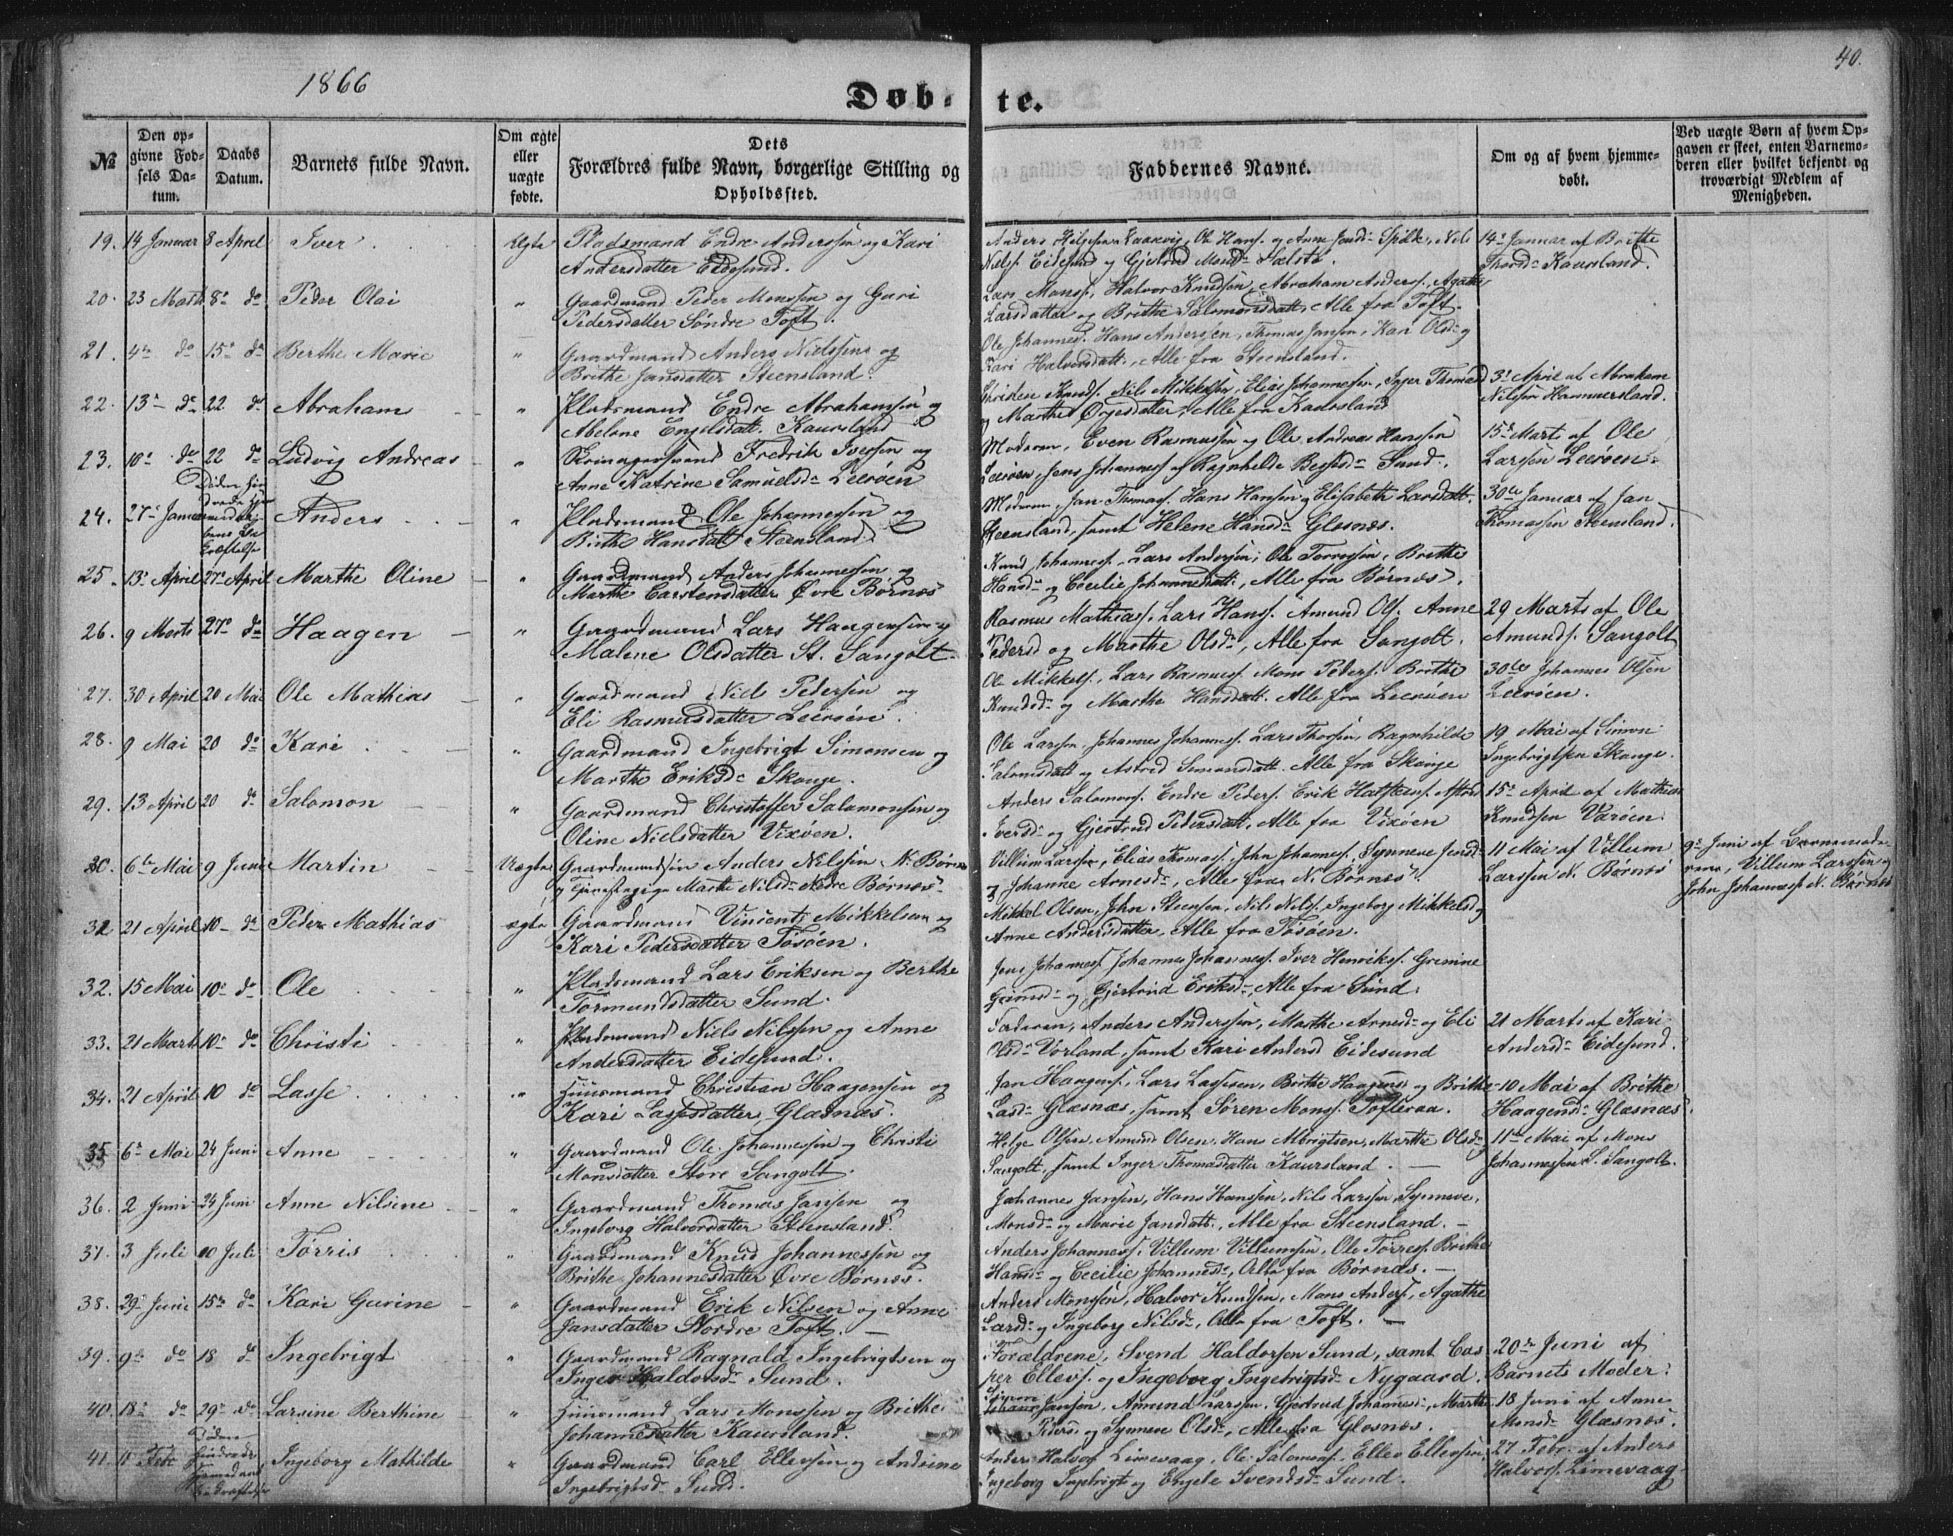 40.
1866
Døbte.
№
Den opgivne Fødsels Datum.
Daabs Datum.
Barnets fulde Navn.
Om ægte eller uægte fødte.
Dets Forældres fulde Navn, borgerlige Stilling og Opholdssted.
Faddernes Navne.
Om og af hvem hjemmedøbt.
Ved uægte Børn af hvem Opgaven er skeet, enten Barnemoderen eller hvilket bekjendt og troværdigt Medlem af Menigheden.
19. 14 Januar 8 April Iver Ægte Pladsmand Endre Anderssen og Kari
Andersdatter Eidesund.
Anders Helgesen Ole Hans. og Anne Spilde, Nils
Nilss. Eidesund og Gjertrud Monsd. Sælstø.
14 Januar af Brithe
Thorsd. Kaursland.
20. 23 Marts 8 do Peder Olai " Gaardmand Peder Monssen og Guri
Pedersdatter Søndre Toft.
Lars Monss. Halvor Knudsen, Abraham Anderss. Agathe
Larsdatter og Brithe Salomonsdatt. Alle fra Toft.
21. 4 do 15 do Berthe Marie " Gaardmand Anders Nielssen og
Brithe Jansdatter Steensland.
Ole Johannes. Hans Anderssen, Thomas Jansen, Kari Olsd. og
Kari Halvorsdatt., Alle fra Steensland.
22. 13 do 22 do Abraham " Pladsmand Endre Abrahamsen og
Abelone Engelsdatt. Kaursland
Christen Knuds. Nils Mikkelsen, Elias Johannessen, Inger Thomasd
og Marthe Alle fra Kaursland
3 April af Abraham
Nilssen Hammersland.
23. 10 do 22 do Ludvig Andreas " Strimand Fredrik Iversen og
Anne Katrine Samuelsd. Leerøen
Moderen, Even Rasmussen og Ole Andreas Hanssen
Leerøen, Jens Johanness. af Ragnhilde Sund.
15 Marts af Ole
Larssen Leerøen.
24. 27 Januar Anders " Pladsmand Ole Johannessen og
Brithe Hansdatt Steensland
Moderen, Jan Thomass. Hans Hansen og Elisabeth Larsdatt.
Steensland, samt Helene Hansd. Glesnæs.
30te Januar af Jan
Thomassen Steensland.
25. 13 April 27 April Marthe Oline " Gaardmand Anders Johannessen og
Marthe Carstensdatter Øvre Børnes
Knud Johanness. Lars Anderssen, Ole Torressen, Brithe
Hansd. og Cecilie Johannesdatt., Alle fra Børnes.
26. 9 Marts 27 do Haagen " Gaardmand Lars Haagensen og
Malene Olsdatter St. Sangolt
Rasmus Mathiass. Lars Hanss. Amund Ols. Anne
Pedersd og Marthe Olsd., Alle fra Sangolt.
29 Marts af Ole
Amunds. Sangolt
27. 30 April 20 Mai Ole Mathias " Gaardmand Niels Pedersen og
Eli Rasmusdatter Leerøen.
Ole Mikkels. Lars Rasmuss. Mons Peders. Brithe
Knudsd. og Marthe Hansdatt. Alle fra Leerøen
30te Johannes Olsen
Leerøen.
28. 9 Mai 20 do Kari " Gaardmand Ingebrigt Simonsen og
Marthe Eriksd. Skonge.
Ole Larssen Johannes Johanness. Lars Thorsen, Ragnhilde
og Astrid Simonsdatt. Alle fra Skonge
19 Mai af Simon
Ingebrigtsen Skonge.
29. 13 April 20 do Salomon " Gaardmand Christoffer Salamonsen og
Oline Nielsdatter Vixøen.
Anders Salomons. Endre Peders. Erik
Iversd. og Gjertrud Pedersdatt. Alle fra Vixøen
15 April af Mathias
Knudsen Varøen.
30. 6te Mai 9 Juni Martin Uægte Gaardmandssøn Anders Nilssen N. Børnes
og Marthe Nilsd. Nedre Børnes.
Villum Larssen, Elias Thomass. John Johanness. Synneve Jensd.
Johanne Arnesd., Alle fra N. Børnes.
11 Mai af Villum
Larssen N. Børnes
9 Juni af Barnemode-
ren, Villum Larssen og
John Johanness. N. Børnes
31. 21 April 10 do Peder Mathias ægte Gaardmand Vincents Mikkelsen og
Kari Pedersdatter Tøsøen.
Mikkel Olsen, John Steensen, Nils Nilss. Ingeborg Mikkelsd. og
Anne Andersdatter, Alle fra Tøsøen.
32. 15 Mai 10 do Ole " Pladsmand Lars Eriksen og Berthe
Tormundsdatter Sund.
Jens Johanness. Johannes Johanness. Iver Henriks.
og Gjertrud Eriksd., Alle fra Sund.
33. 21 Marts 10 do Christi " Pladsmand Niels Nilssen og Anne
Andersdatter Eidesund.
Faderen, Anders Anderssen, Marthe Arnesd. og Eli
Olsd. Vorland, samt Kari Andersd Eidesund
21 Marts af Kari
Andersd. Eidesund.
34. 21 April 10 do Lasse " Huusmand Christian Haagensen og
Kari Lassesdatter Glæsnæs.
Jan Haagens. Lars Lassesen, Brithe Haagens. og Brithe
Lasd. Glæsnæs, samt Søren Monss. Tofteraa.
10 Mai af Brithe
Haagensd. Glæsnæs.
35 6 Mai 24 Juni Anne " Gaardmand Ole Johannessen og Christi
Monsdatter Store Sangolt.
Helge Olsen, Amund Olsen, Hans Albrigtsen, Marthe Olsd.
Sangolt, samt Inger Thomasdatter Kaursland.
11te Mai af Mons
Johannessen S. Sangolt.
36. 2 Juni 24 Juni Anne Nilsine " Gaardmand Thomas Jansen og
Ingeborg Halvorsdatter Steensland.
Johannes Jansen, Hans Hanssen, Nils Larssen, Synneve
Monsd. og Marie Jansdatt. Alle fra Steensland.
37. 3 Juli 10 Juli Tørris " Gaardmand Knud Johannessen og
Brithe Johannesdatter Øvre Børnes.
Anders Johanness. Villum Villumsen, Ole Torress. Brithe
Hansd. og Cecilie Johannesd., Alle fra Børnæs.
38. 29 Juni 15 do Kari Gurine " Gaardmand Erik Nilsen og Anne
Jansdatter Nordre Toft.
Anders Monssen, Halvor Knudsen, Mons Anders. Agathe
Larsd. og Ingeborg Nilsd., Alle fra Toft.
39. 9 do 18 do Ingebrigt " Gaardmand Ragnald Ingebrigtsen og
Inger Haldorsd. Sund.
Forældrene, Svend Haldorsen Sund, samt Cas-
per Ellevs. og Ingeborg Ingebrigtsd. Nygaard.
20 Juni af
Barnets Moder.
40. 18 do 29 do Larsine Berthine " Huusmand Lars Monssen og Brithe
Johannesdatter Kaursland.
Jansen, Amund Larsen, Gjertrud Johannesd., Marthe
Pedersd. og Synneve Olsd., Alle fra Glesnæs.
18 Juni af Anne
Monsd. Glæsnæs.
41. 11 Febr Ingeborg Mathilde " Gaardmand Carl Ellevsen og Andrine
Ingebrigtsd. Sund.
Anders Halvors. Limevaag, Ole Salomons. Ellev Ellevsen,
Ingeborg Ingebrigts. og Engele Svendsd. Sund.
27 Febr. af Anders
Halvors. Limevaag